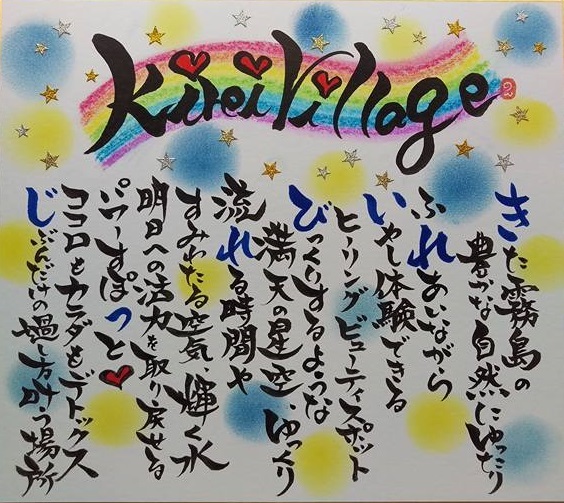 Kirei Village
きた霧島の
豊かな自然にゆったり
ふれあいながら
いやし体験できる
ヒーリングビューティスポット
びっくりするような
満天の星空、ゆっくり
流れる時間や
すみわたる空気、輝く水
明日への活力を取り戻せる
パワーすぽっと
ココロもカラダもデトックス
じぶんだけの過し方叶う場所